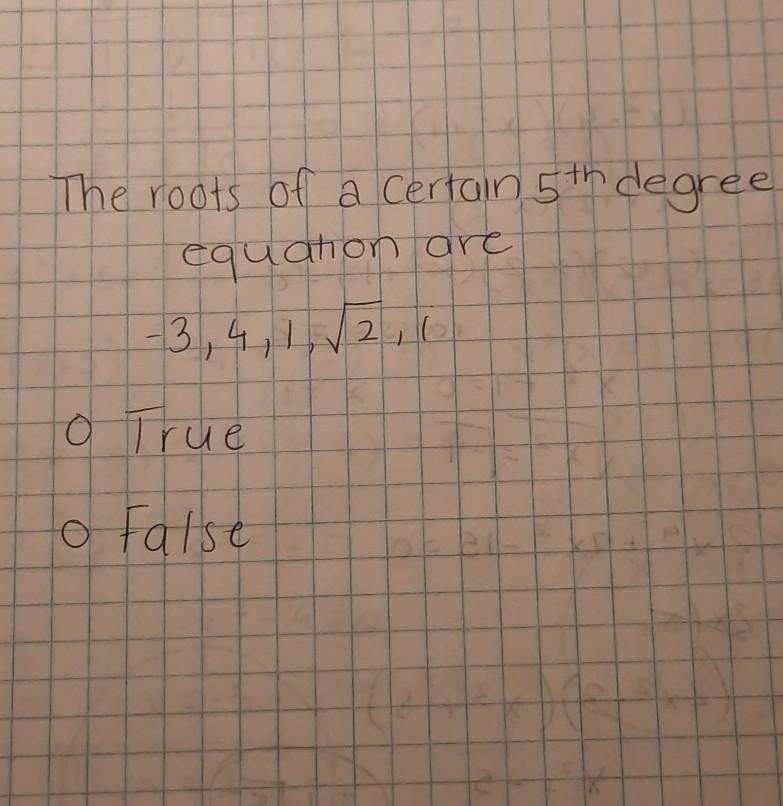 The roots of a certain 5th degree
equation are
-3, 4, 1, √2, i
O True
O False